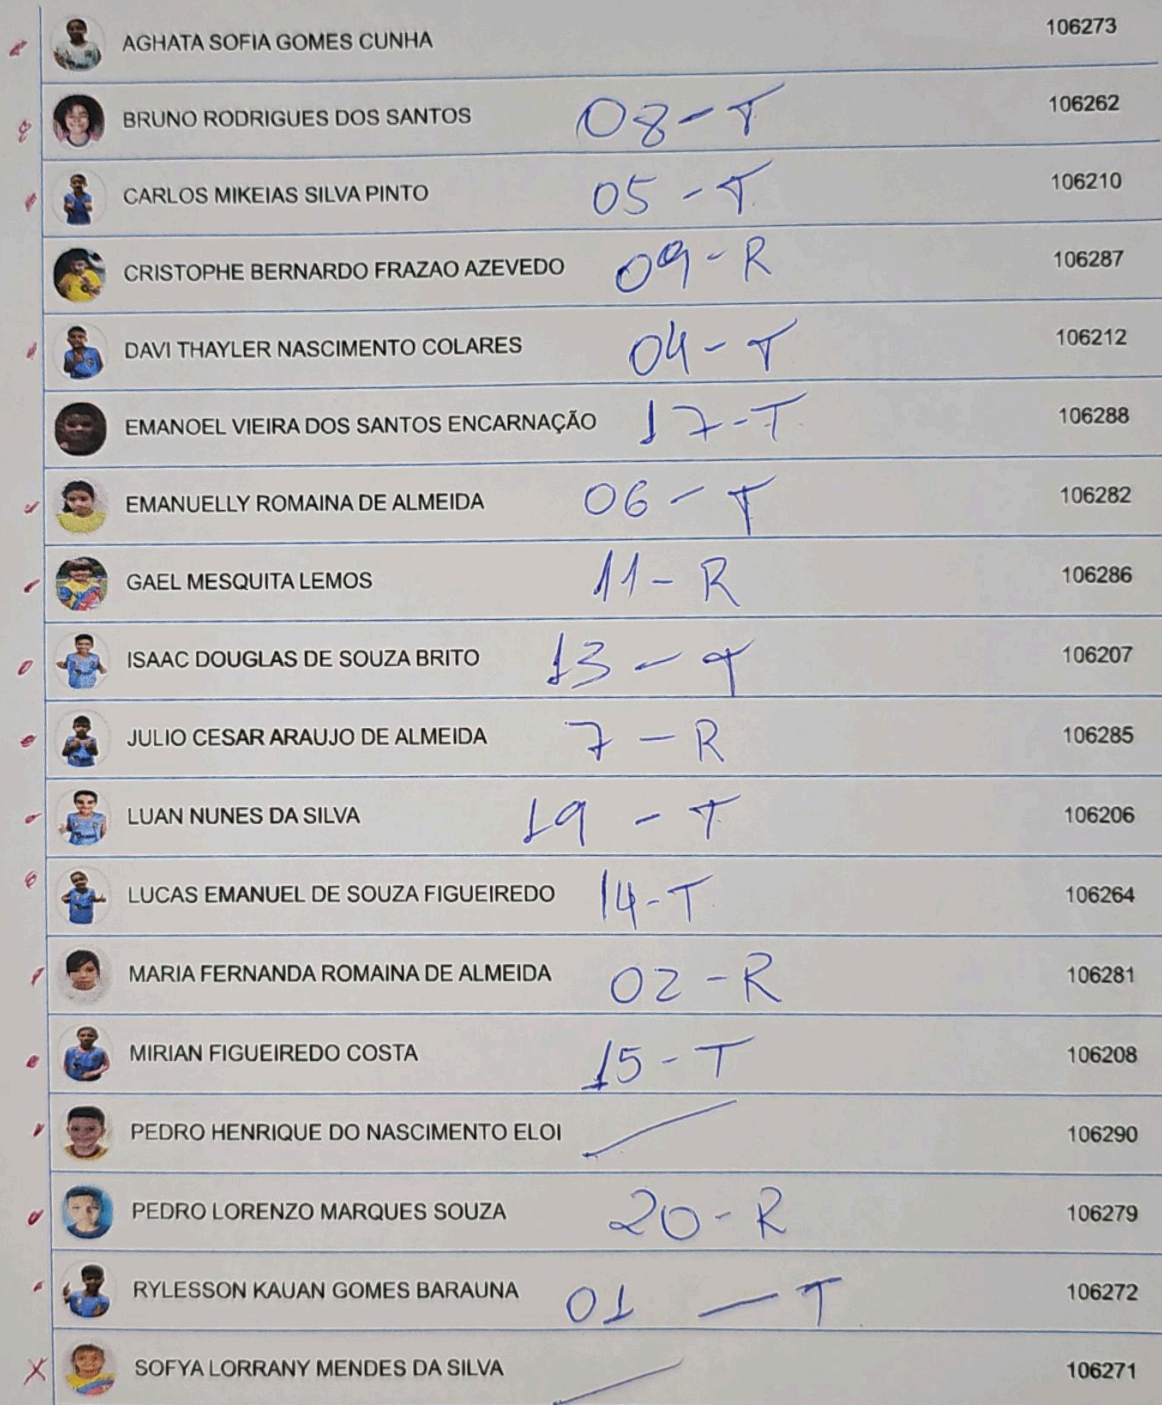 AGHATA SOFIA GOMES CUNHA 106273
BRUNO RODRIGUES DOS SANTOS 08-T 106262
CARLOS MIKEIAS SILVA PINTO 05-T 106210
CRISTOPHE BERNARDO FRAZAO AZEVEDO 09-R 106287
DAVI THAYLER NASCIMENTO COLARES 04-T 106212
EMANOEL VIEIRA DOS SANTOS ENCARNAÇÃO 17-T 106288
EMANUELLY ROMAINA DE ALMEIDA 06-T 106282
GAEL MESQUITA LEMOS 11-R 106286
ISAAC DOUGLAS DE SOUZA BRITO 13-T 106207
JULIO CESAR ARAUJO DE ALMEIDA 7-R 106285
LUAN NUNES DA SILVA 19-T 106206
LUCAS EMANUEL DE SOUZA FIGUEIREDO 14-T 106264
MARIA FERNANDA ROMAINA DE ALMEIDA 02-R 106281
MIRIAN FIGUEIREDO COSTA 15-T 106208
PEDRO HENRIQUE DO NASCIMENTO ELOI 106290
PEDRO LORENZO MARQUES SOUZA 20-R 106279
RYLESSON KAUAN GOMES BARAUNA 01-T 106272
SOFYA LORRANY MENDES DA SILVA 106271